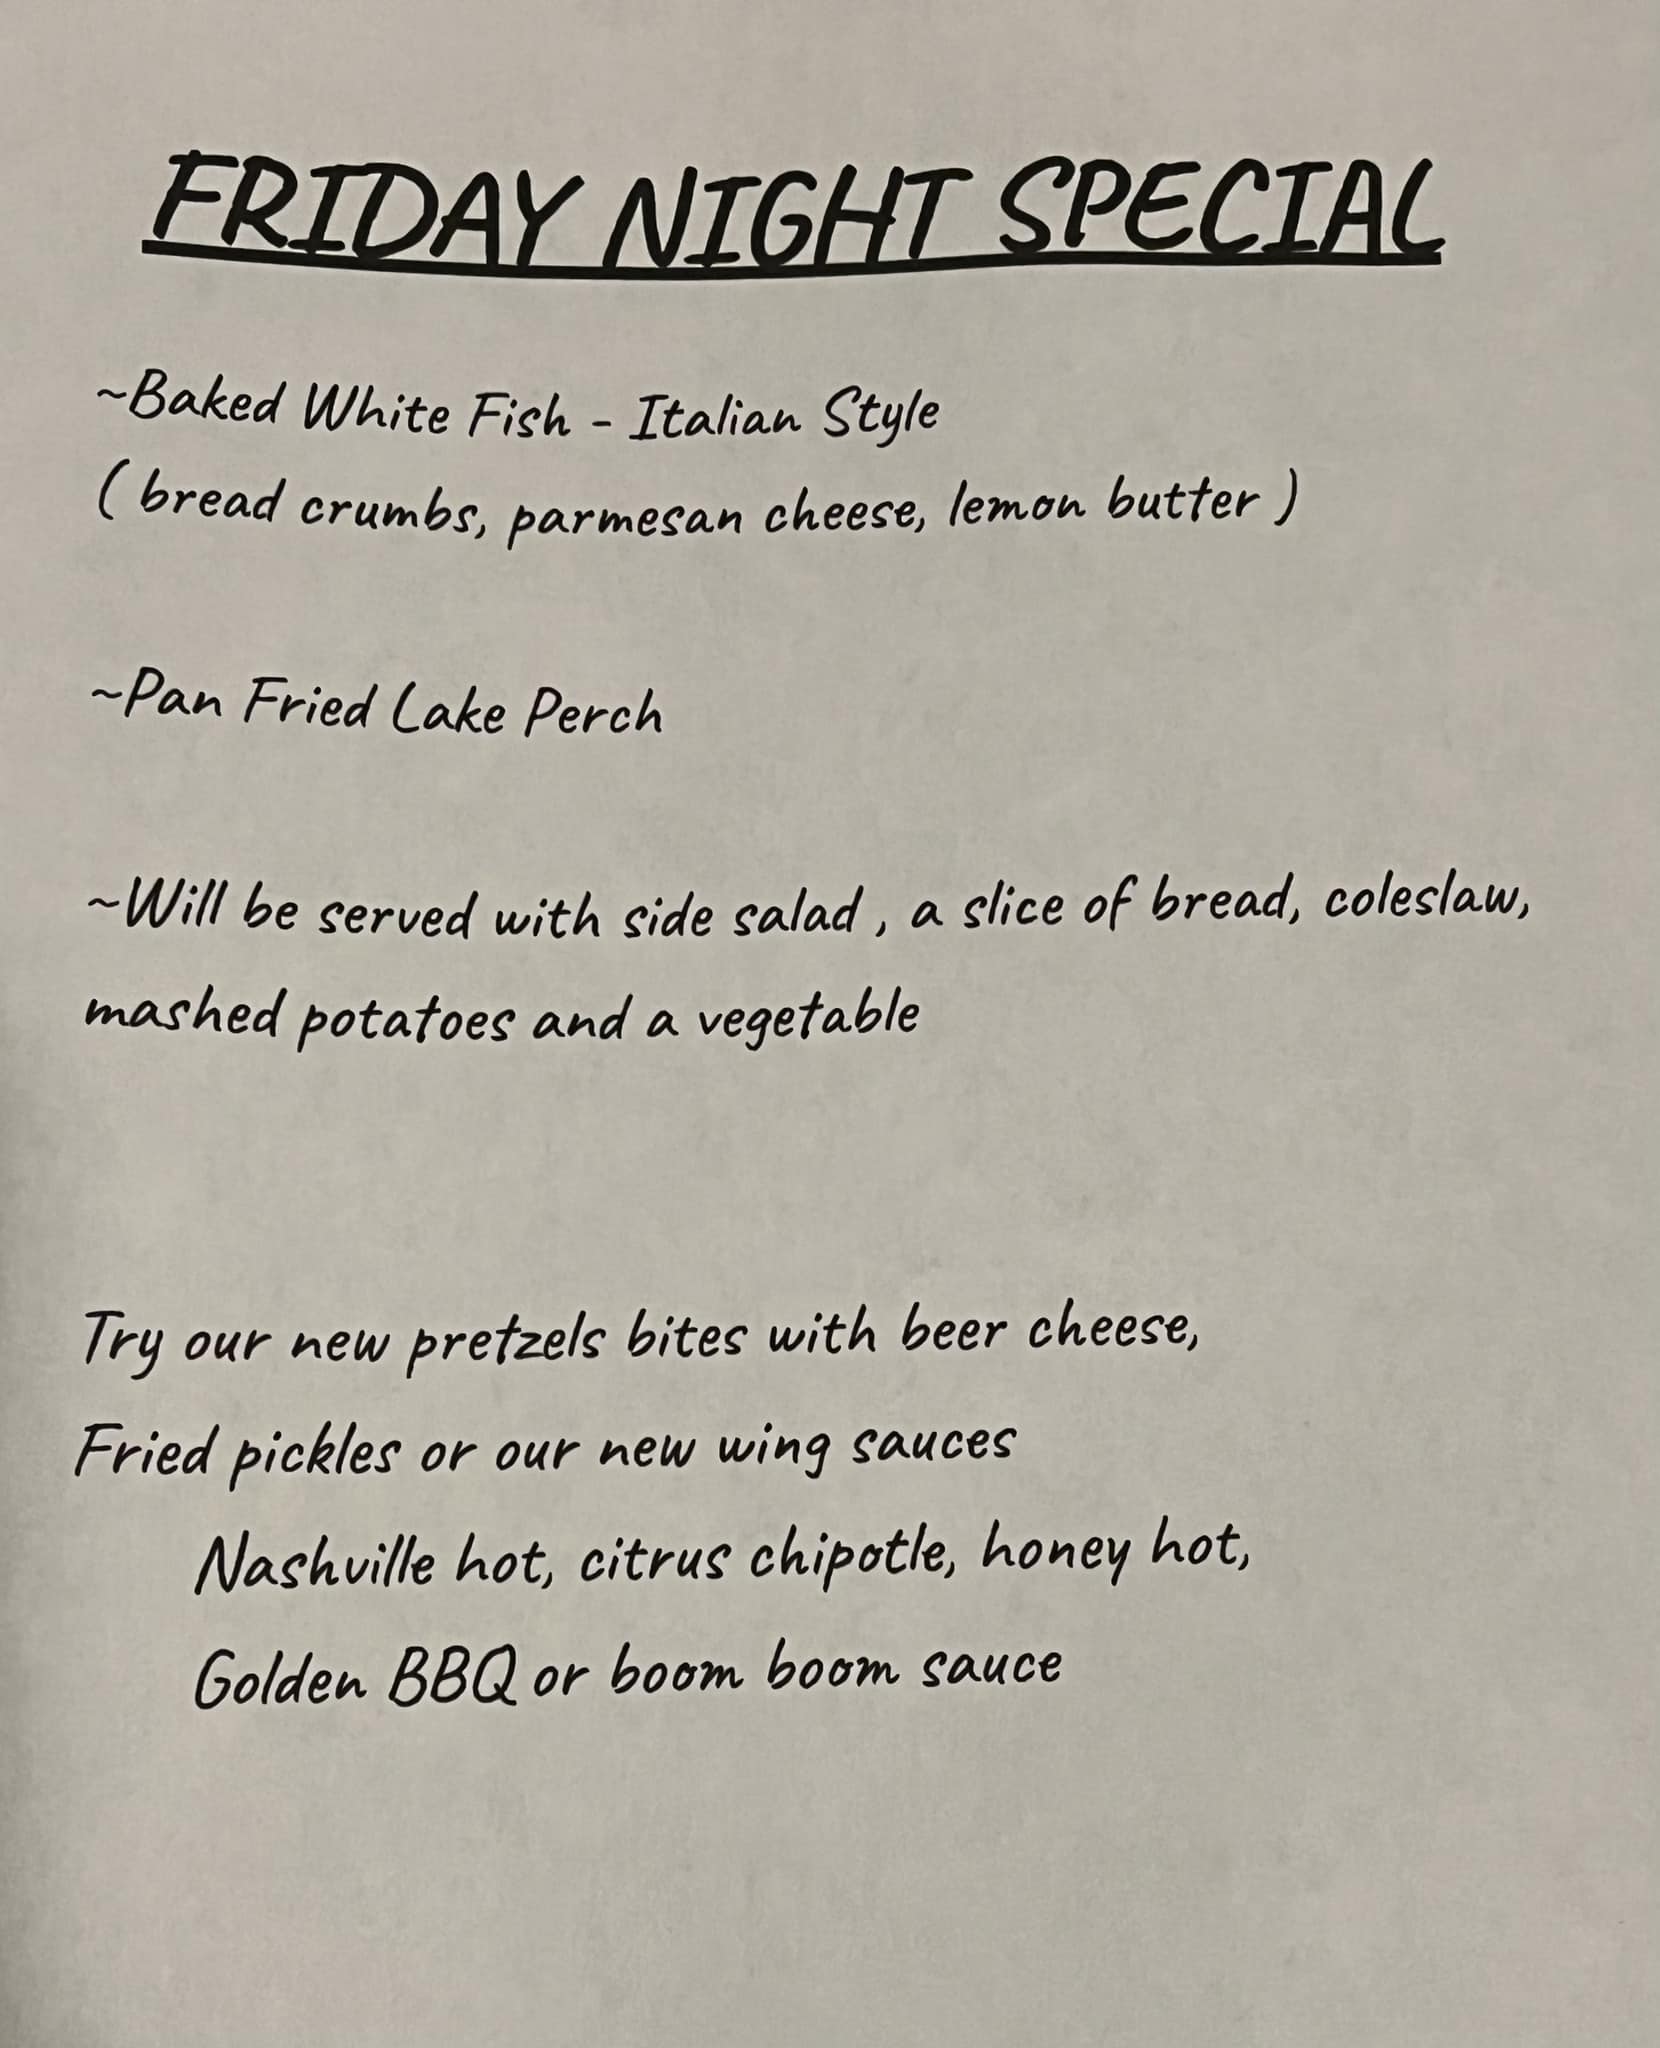 FRIDAY NIGHT SPECIAL
~Baked White Fish - Italian Style
( bread crumbs, parmesan cheese, lemon butter )
~Pan Fried Lake Perch
~Will be served with side salad , a slice of bread, coleslaw,
mashed potatoes and a vegetable
Try our new pretzels bites with beer cheese,
Fried pickles or our new wing sauces
Nashville hot, citrus chipotle, honey hot,
Golden BBQ or boom boom sauce